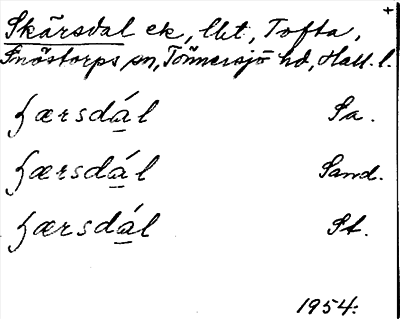 +
Skärsdal ek, lht, Tofta,
Snöstorps sn, Tönnersjö hd, Hall. l.
ɧærsdá̱l Sa.
ɧærsdá̱l Sand.
ɧærsdá̱l St.
1954: